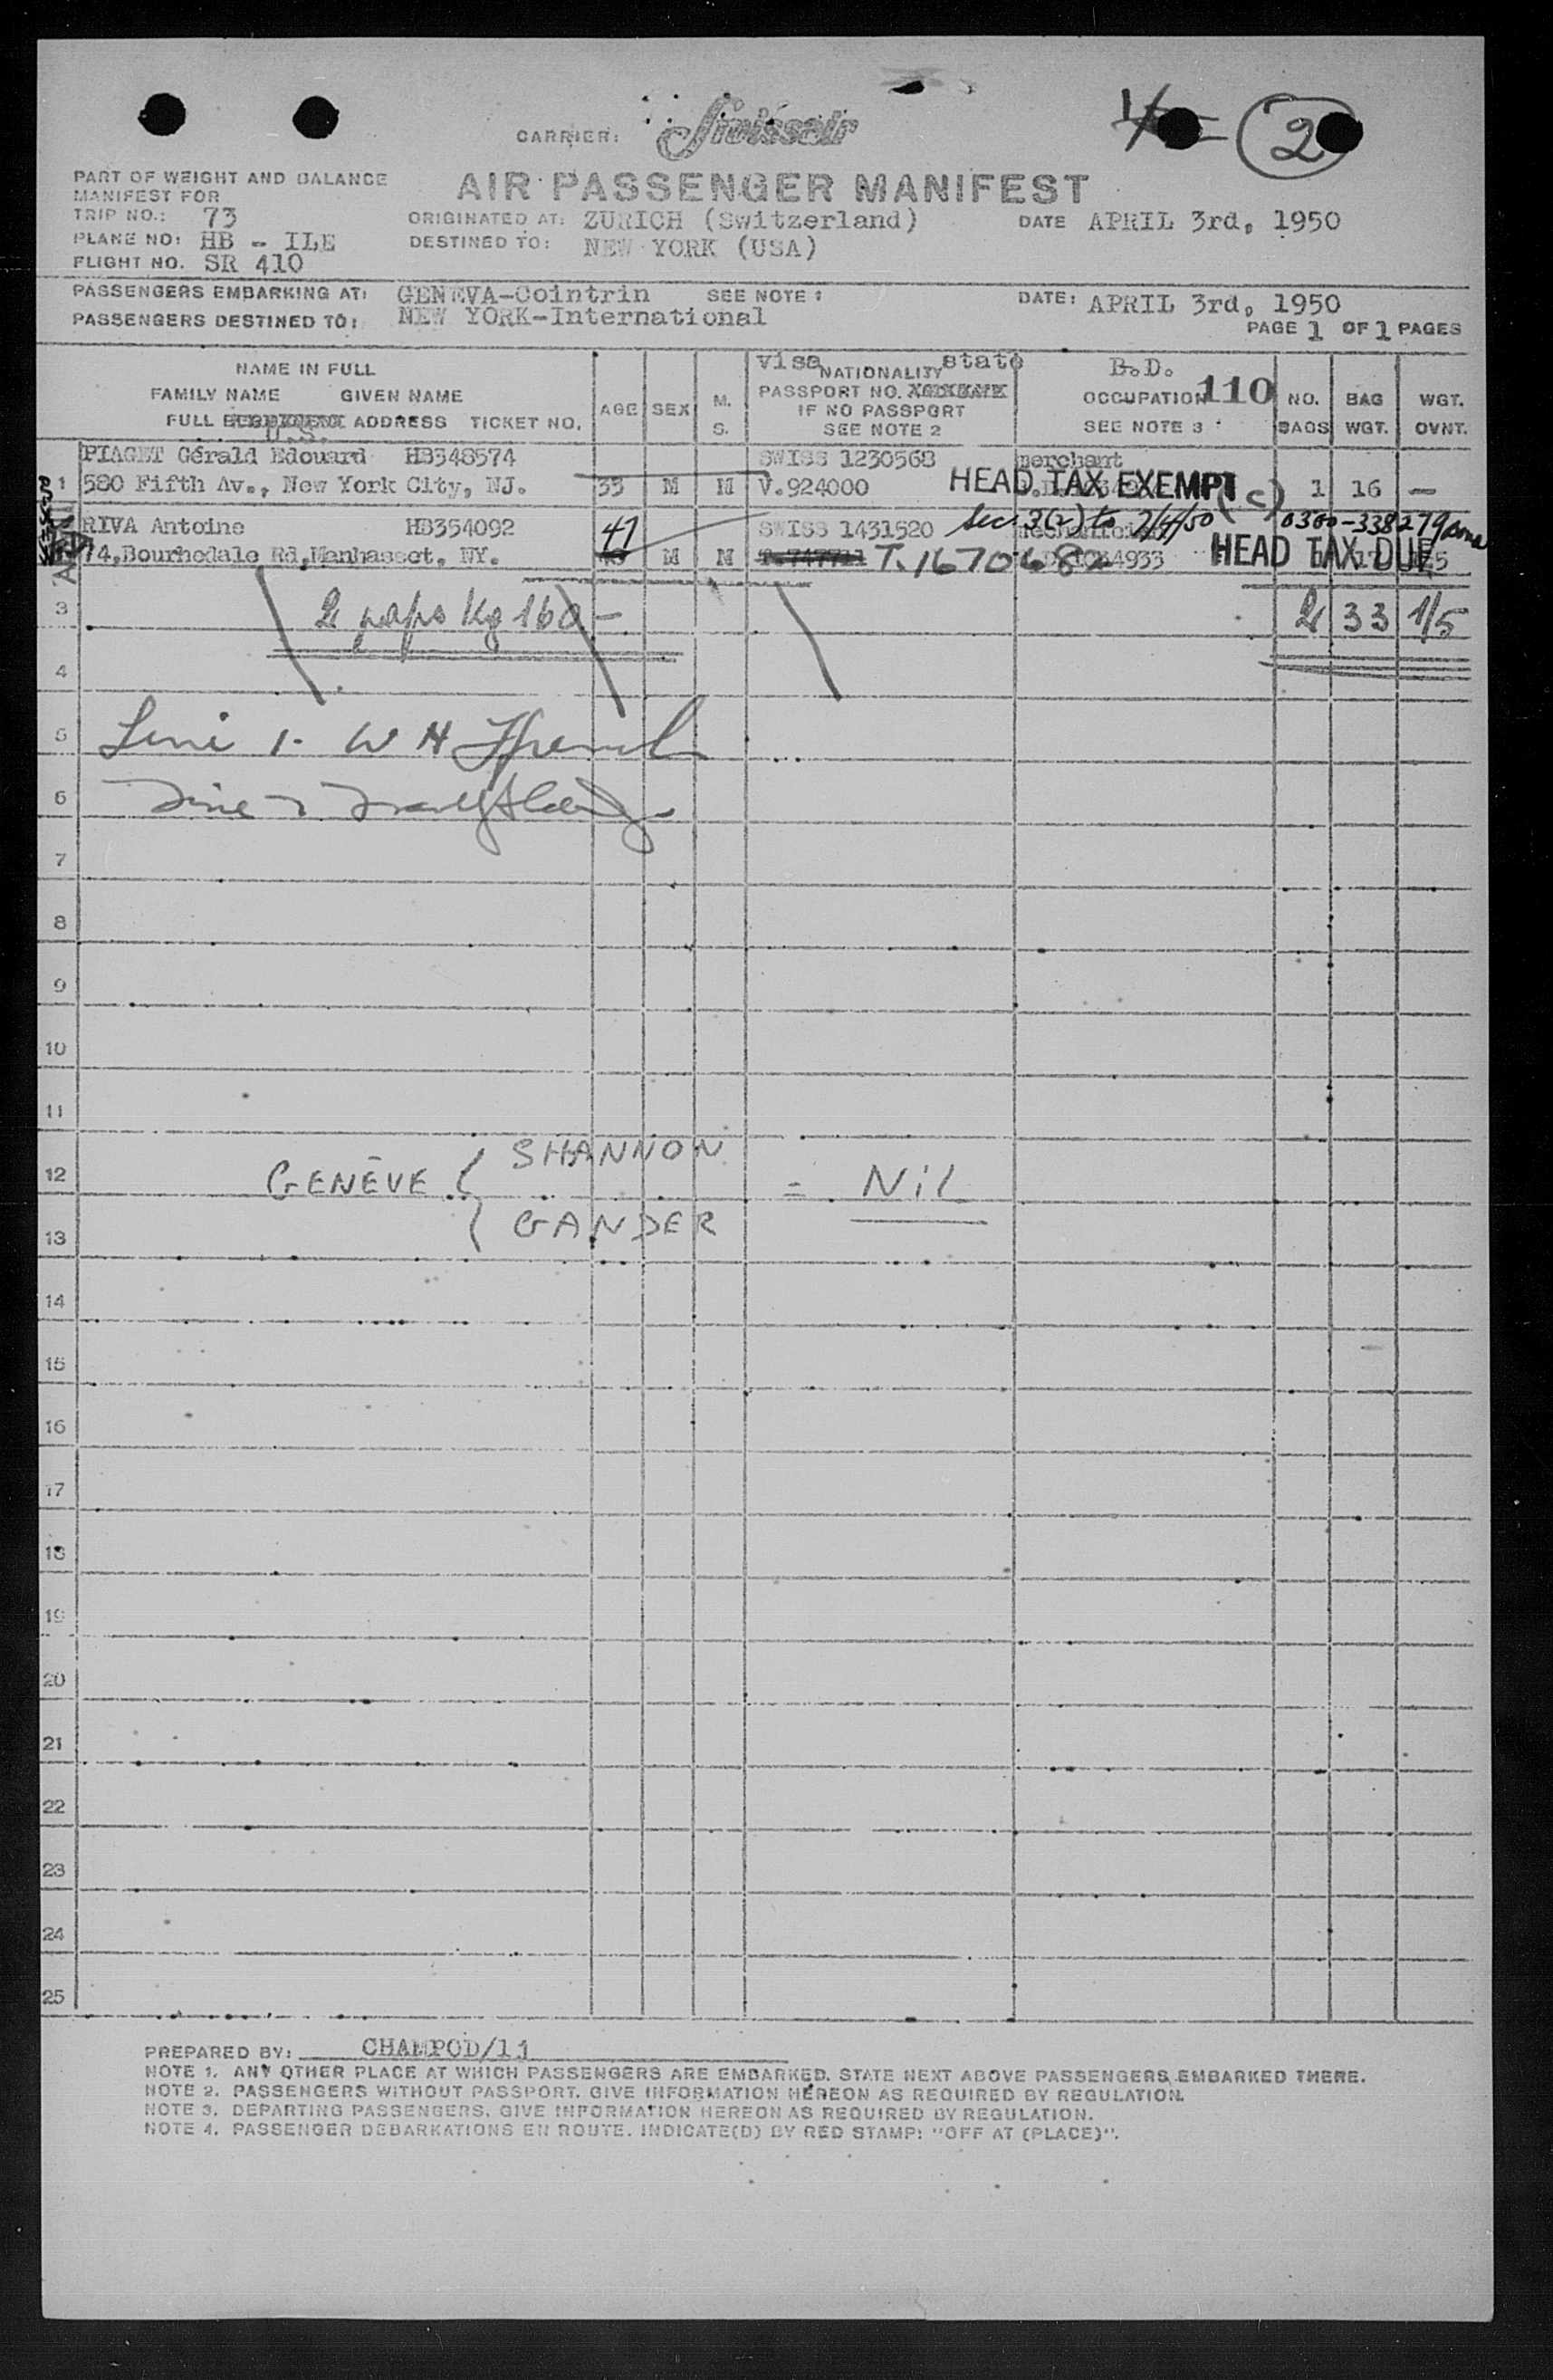 CARRIER: Swissair
2
AIR PASSENGER MANIFEST
PART OF WEIGHT AND BALANCE
MANIFEST FOR
TRIP NO.: 73
ORIGINATED AT: ZURICH (Switzerland)
DATE APRIL 3rd, 1950
PLANE NO: HB - ILE
DESTINED TO: NEW YORK (USA)
FLIGHT NO. SR 410
PASSENGERS EMBARKING AT: GENEVA-Cointrin SEE NOTE 1 DATE: APRIL 3rd, 1950
PASSENGERS DESTINED TO: NEW YORK-International
PAGE 1 OF 1 PAGES
NAME IN FULL
FAMILY NAME GIVEN NAME
FULL ADDRESS TICKET NO.
U.S.
AGE SEX M. S.
visa NATIONALITY state
PASSPORT NO.
IF NO PASSPORT
SEE NOTE 2
B.D.
OCCUPATION 110
SEE NOTE 3
NO. BAGS
BAG WGT.
WGT. OVNT.
PIAGET Gérald Edouard HB348574 SWISS 1230568 merchant
1 580 Fifth Av., New York City, NJ. 33 M M V.924000 HEAD TAX EXEMPT (c) 1 16 —
RIVA Antoine HB354092 47 SWISS 1431520 Sec. 3(2) to 2/4/50 0300-338279
74, Bourhedale Rd, Manhasset, NY. M M T.1670682 HEAD TAX DUE
3 2 paps Kg 160 - 2 33 1/5
4
5 Line 1 - W H French
6 Line 2
7
8
9
10
11
12 GENÈVE { SHANNON = Nil
13 GANDER
14
15
16
17
18
19
20
21
22
23
24
25
PREPARED BY: CHAMPOD/lj
NOTE 1. ANY OTHER PLACE AT WHICH PASSENGERS ARE EMBARKED. STATE NEXT ABOVE PASSENGERS EMBARKED THERE.
NOTE 2. PASSENGERS WITHOUT PASSPORT. GIVE INFORMATION HEREON AS REQUIRED BY REGULATION.
NOTE 3. DEPARTING PASSENGERS. GIVE INFORMATION HEREON AS REQUIRED BY REGULATION.
NOTE 4. PASSENGER DEBARKATIONS EN ROUTE. INDICATE(D) BY RED STAMP: "OFF AT (PLACE)".